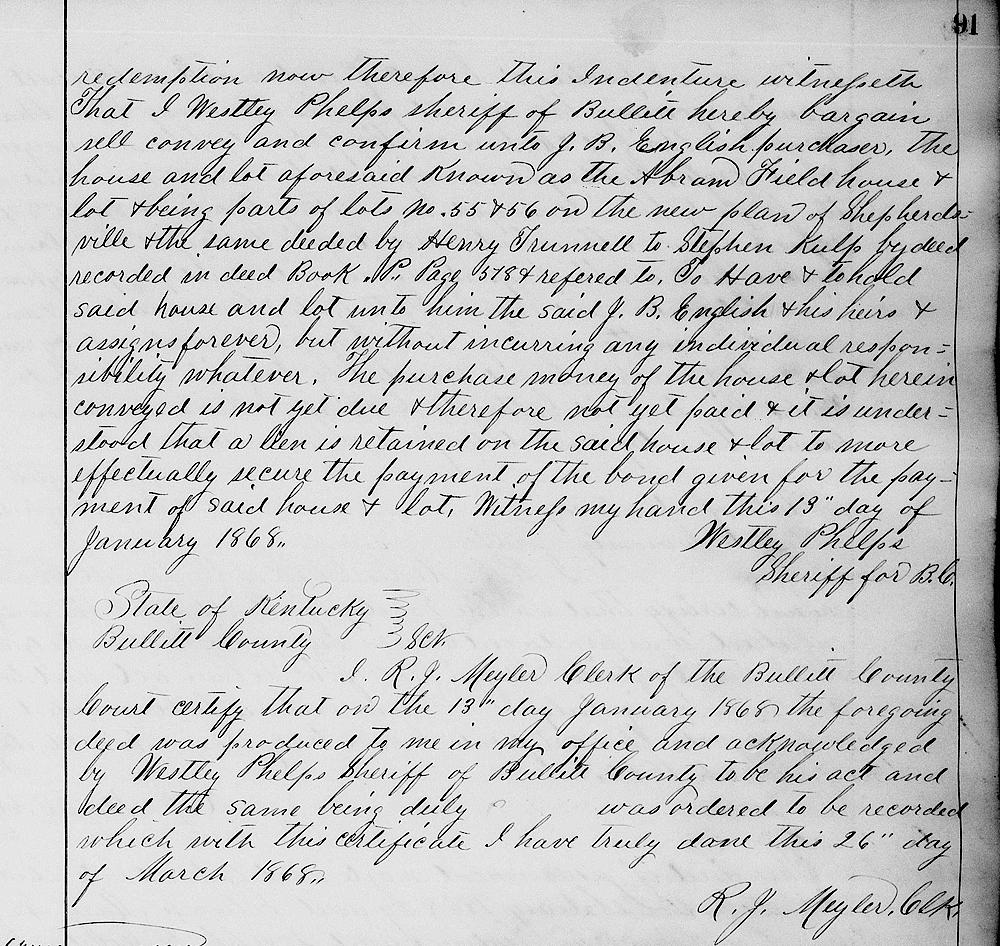 91
redemption now therefore this Indenture witnesseth
That I Westley Phelps sheriff of Bullitt hereby bargain
sell convey and confirm unto J. B. English purchaser, the
house and lot aforesaid Known as the Abram Field house &
lot & being parts of lots No. 55 & 56 on the new plan of Shepherds-
ville & the same deeded by Henry Trunnell to Stephen Kulp by deed
recorded in deed Book P. Page 518 & refered to. To Have & to hold
said house and lot unto him the said J. B. English & his heirs &
assigns forever, but without incurring any individual respon=
sibility whatever. The purchase money of the house & lot herein
conveyed is not yet due & therefore not yet paid & it is under=
stood that a lien is retained on the said house & lot to more
effectually secure the payment of the bond given for the pay=
ment of said house & lot. Witness my hand this 13" day of
January 1868.
Westley Phelps
Sheriff for B.C.
State of Kentucky
Bullitt County } Sct.
I. R. J. Meyler Clerk of the Bullitt County
Court certify that on the 13" day January 1868 the foregoing
deed was produced to me in my office and acknowledged
by Westley Phelps Sheriff of Bullitt County to be his act and
deed the same being duly was ordered to be recorded
which with this certificate I have truly done this 26" day
of March 1868.
R. J. Meyler, Clk.